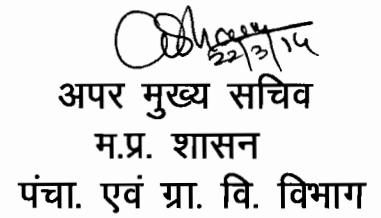 22/3/14
अपर मुख्य सचिव
म.प्र. शासन
पंचा. एवं ग्रा. वि. विभाग